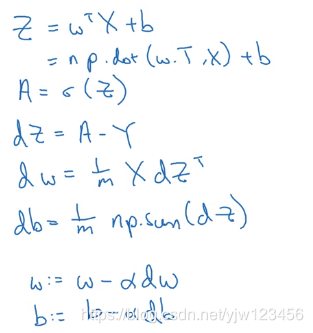 Z = wᵀX + b
= np.dot(w.T, X) + b
A = σ(Z)
dZ = A - Y
dw = 1/m X dZᵀ
db = 1/m np.sum(dZ)
w := w - αdw
b := b - αdb
https://blog.csdn.net/yjw123456